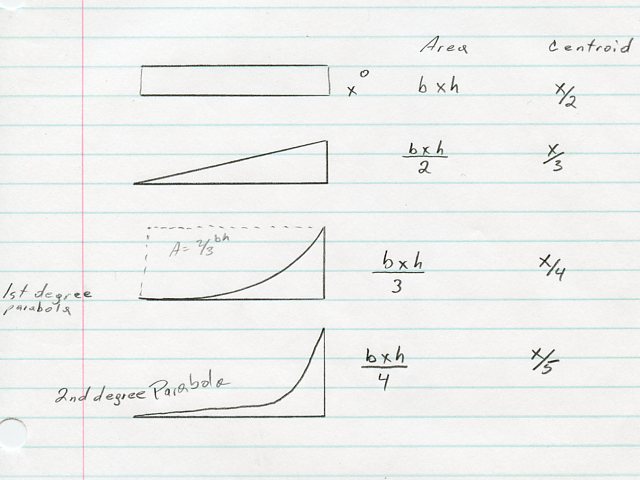 Area Centroid
x° b x h x/2
b x h
2
x/3
A = 2/3 bh
1st degree
parabola
b x h
3
x/4
2nd degree Parabola
b x h
4
x/5